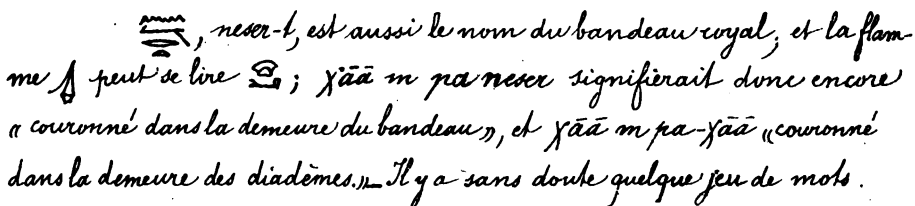 , neser-t, est aussi le nom du bandeau royal; et la flam-
me peut se lire ; χāā m pa neser signifierait donc encore
« couronné dans la demeure du bandeau », et χāā m pa-χāā « couronné
dans la demeure des diadèmes. » — Il y a sans doute quelque jeu de mots.